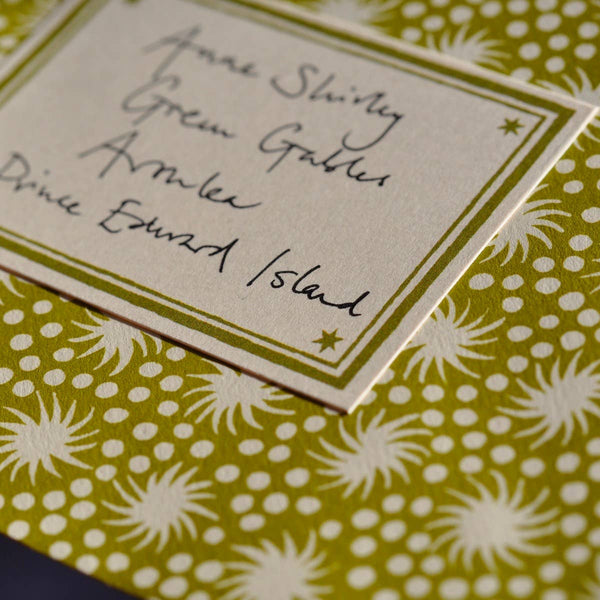 Anne Shirley
Green Gables
Avonlea
Prince Edward Island